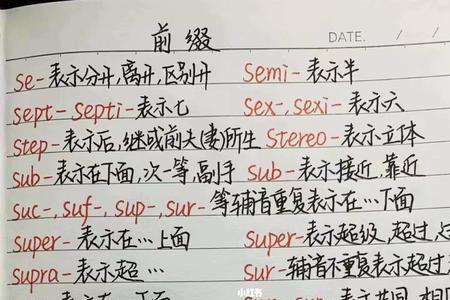 前缀
DATE. / /
se-表示分开,离开,区别开 semi-表示半
sept-septi-表示七 sex-,sexi-表示六
step-表示后,继或前夫(妻)所生 stereo-表示立体
sub-表示在下面,次一等,副手 sub-表示接近,靠近
suc-,suf-,sup-,sur-等辅音重复表示在…下面
super-表示在…上面 super-表示超级,超过,
supra-表示超… sur-辅音不重复表示超过
小红书